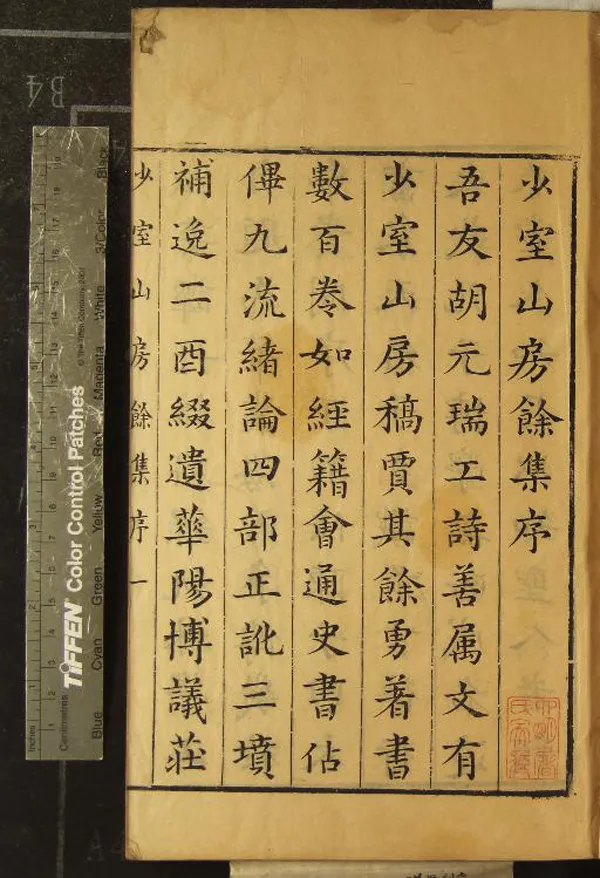 少室山房餘集序
吾友胡元瑞工詩善属文有
少室山房稿賈其餘勇著書
數百卷如經籍會通史書佔
㑻九流緒論四部正訛三墳
補逸二酉綴遺華陽博議莊
少室山房餘集序 一
B4
A4
Inches
Centimetres
TIFFEN Color Control Patches
© The Tiffen Company, 2007
Blue Cyan Green Yellow Red Magenta White 3/Color Black